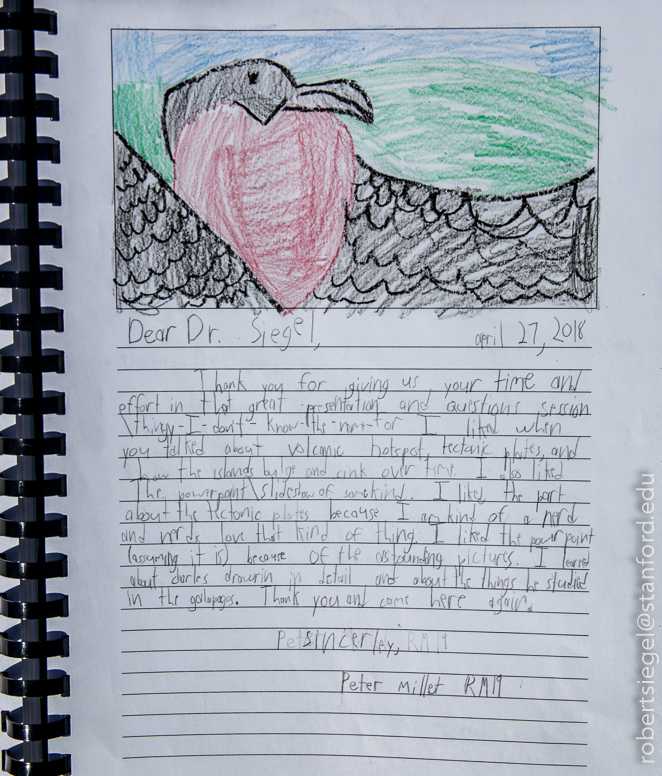 Dear Dr. Siegel,
april 27, 2018
Thank you for giving us, your time and
effort in that great presentation and questions session
\thingy-I-don't-know-the-name-for I liked when
you talked about volcanic hotspot, tectonic plates, and
how the islands bulge and sink over time. I also liked
The powerpoint\slideshow of some kind. I liked the part
about the tectonic plates because I am kind of a nerd
and nerds love that kind of thing. I liked the powerpoint
(assuming it is) because of the astounding pictures. I learned
about charles drawrin in detail and about the things he studied
in the gallapages. Thank you and come here again.
sincerley, RM 19
Peter Millet RM19
robertsiegel@stanford.edu